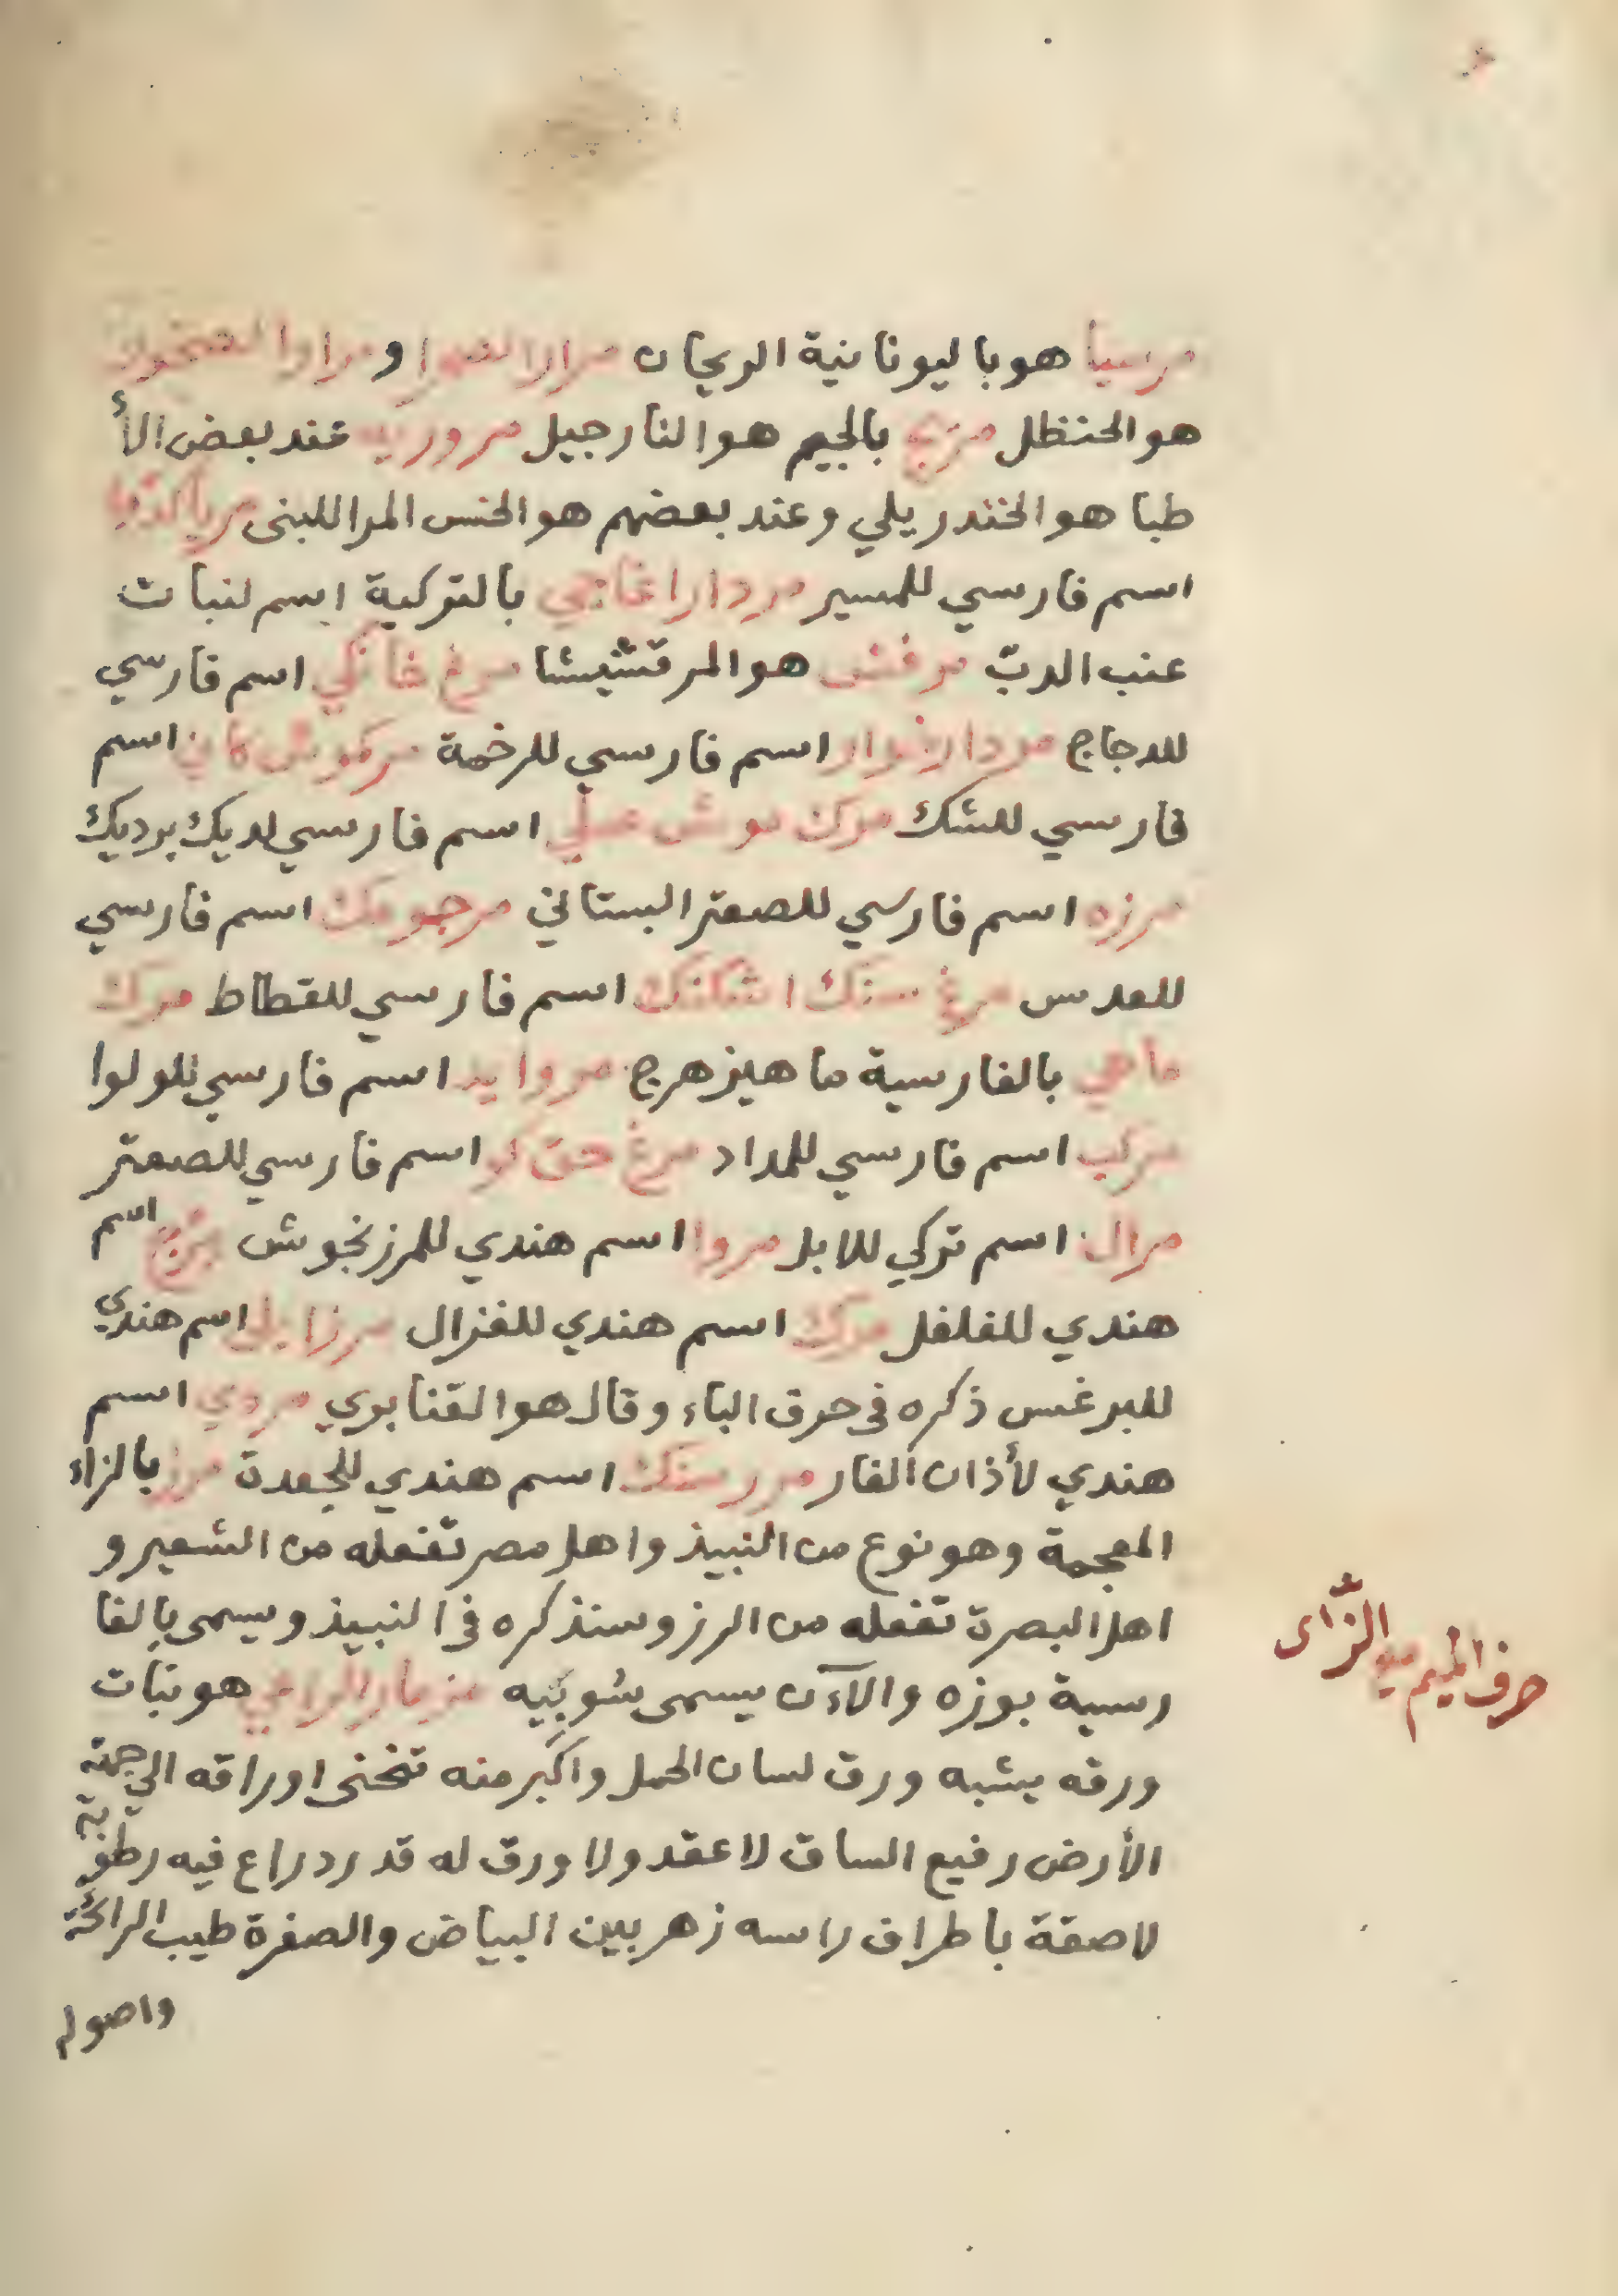 مرسيا هو باليونانية الريحان مرارا و مرارا
هو الحنظل مرنج بالجيم هو النارجيل مرورية عند بعض الأ
طبا هو الخندريلي وعند بعضهم هو الخس المر اللبنى
اسم فارسي للمسير مردار اغاجي بالتركية اسم لنبات
عنب الدبّ مرقش هو المرقشيشا مرغ خانكي اسم فارسي
للدجاج مردارخوار اسم فارسي للرخمة اسم
فارسي للشك مرك موش عملي اسم فارسي لديك برديك
مرزه اسم فارسي للصعتر البستاني مرجومك اسم فارسي
للعدس مرغ سنك اشكنك اسم فارسي للقطاط مرك
ماهي بالفارسية ماهيزهرج مرواريد اسم فارسي للولوا
مركب اسم فارسي للمداد مرغ اسم فارسي للصعتر
مرال اسم تركي للابل مروا اسم هندي للمرزنجوش مرج اسم
هندي للفلفل مرك اسم هندي للغزال اسم هندي
للبرغس ذكره في حرف الباء وقال هو القنابري مردي اسم
هندي لأذان الفار اسم هندي للجعدة مزر بالزاء
المعجمة وهو نوع من النبيذ واهل مصر تفعله من الشعير و
اهل البصرة تفعله من الرز وسنذكره في النبيذ ويسمى بالفا
رسية بوزه والآن يسمى شوبيه مزمار الراعي هو نبات
ورقه يشبه ورق لسان الحمل واكبر منه تنحنى اوراقه الى جهة
الأرض رفيع الساق لا عقد ولا ورق له قدر دراع فيه رطوبة
لاصقة باطراف راسه زهر بين البياض والصفرة طيب الرائحة
واصوله
حرف الميم مع الزّاى